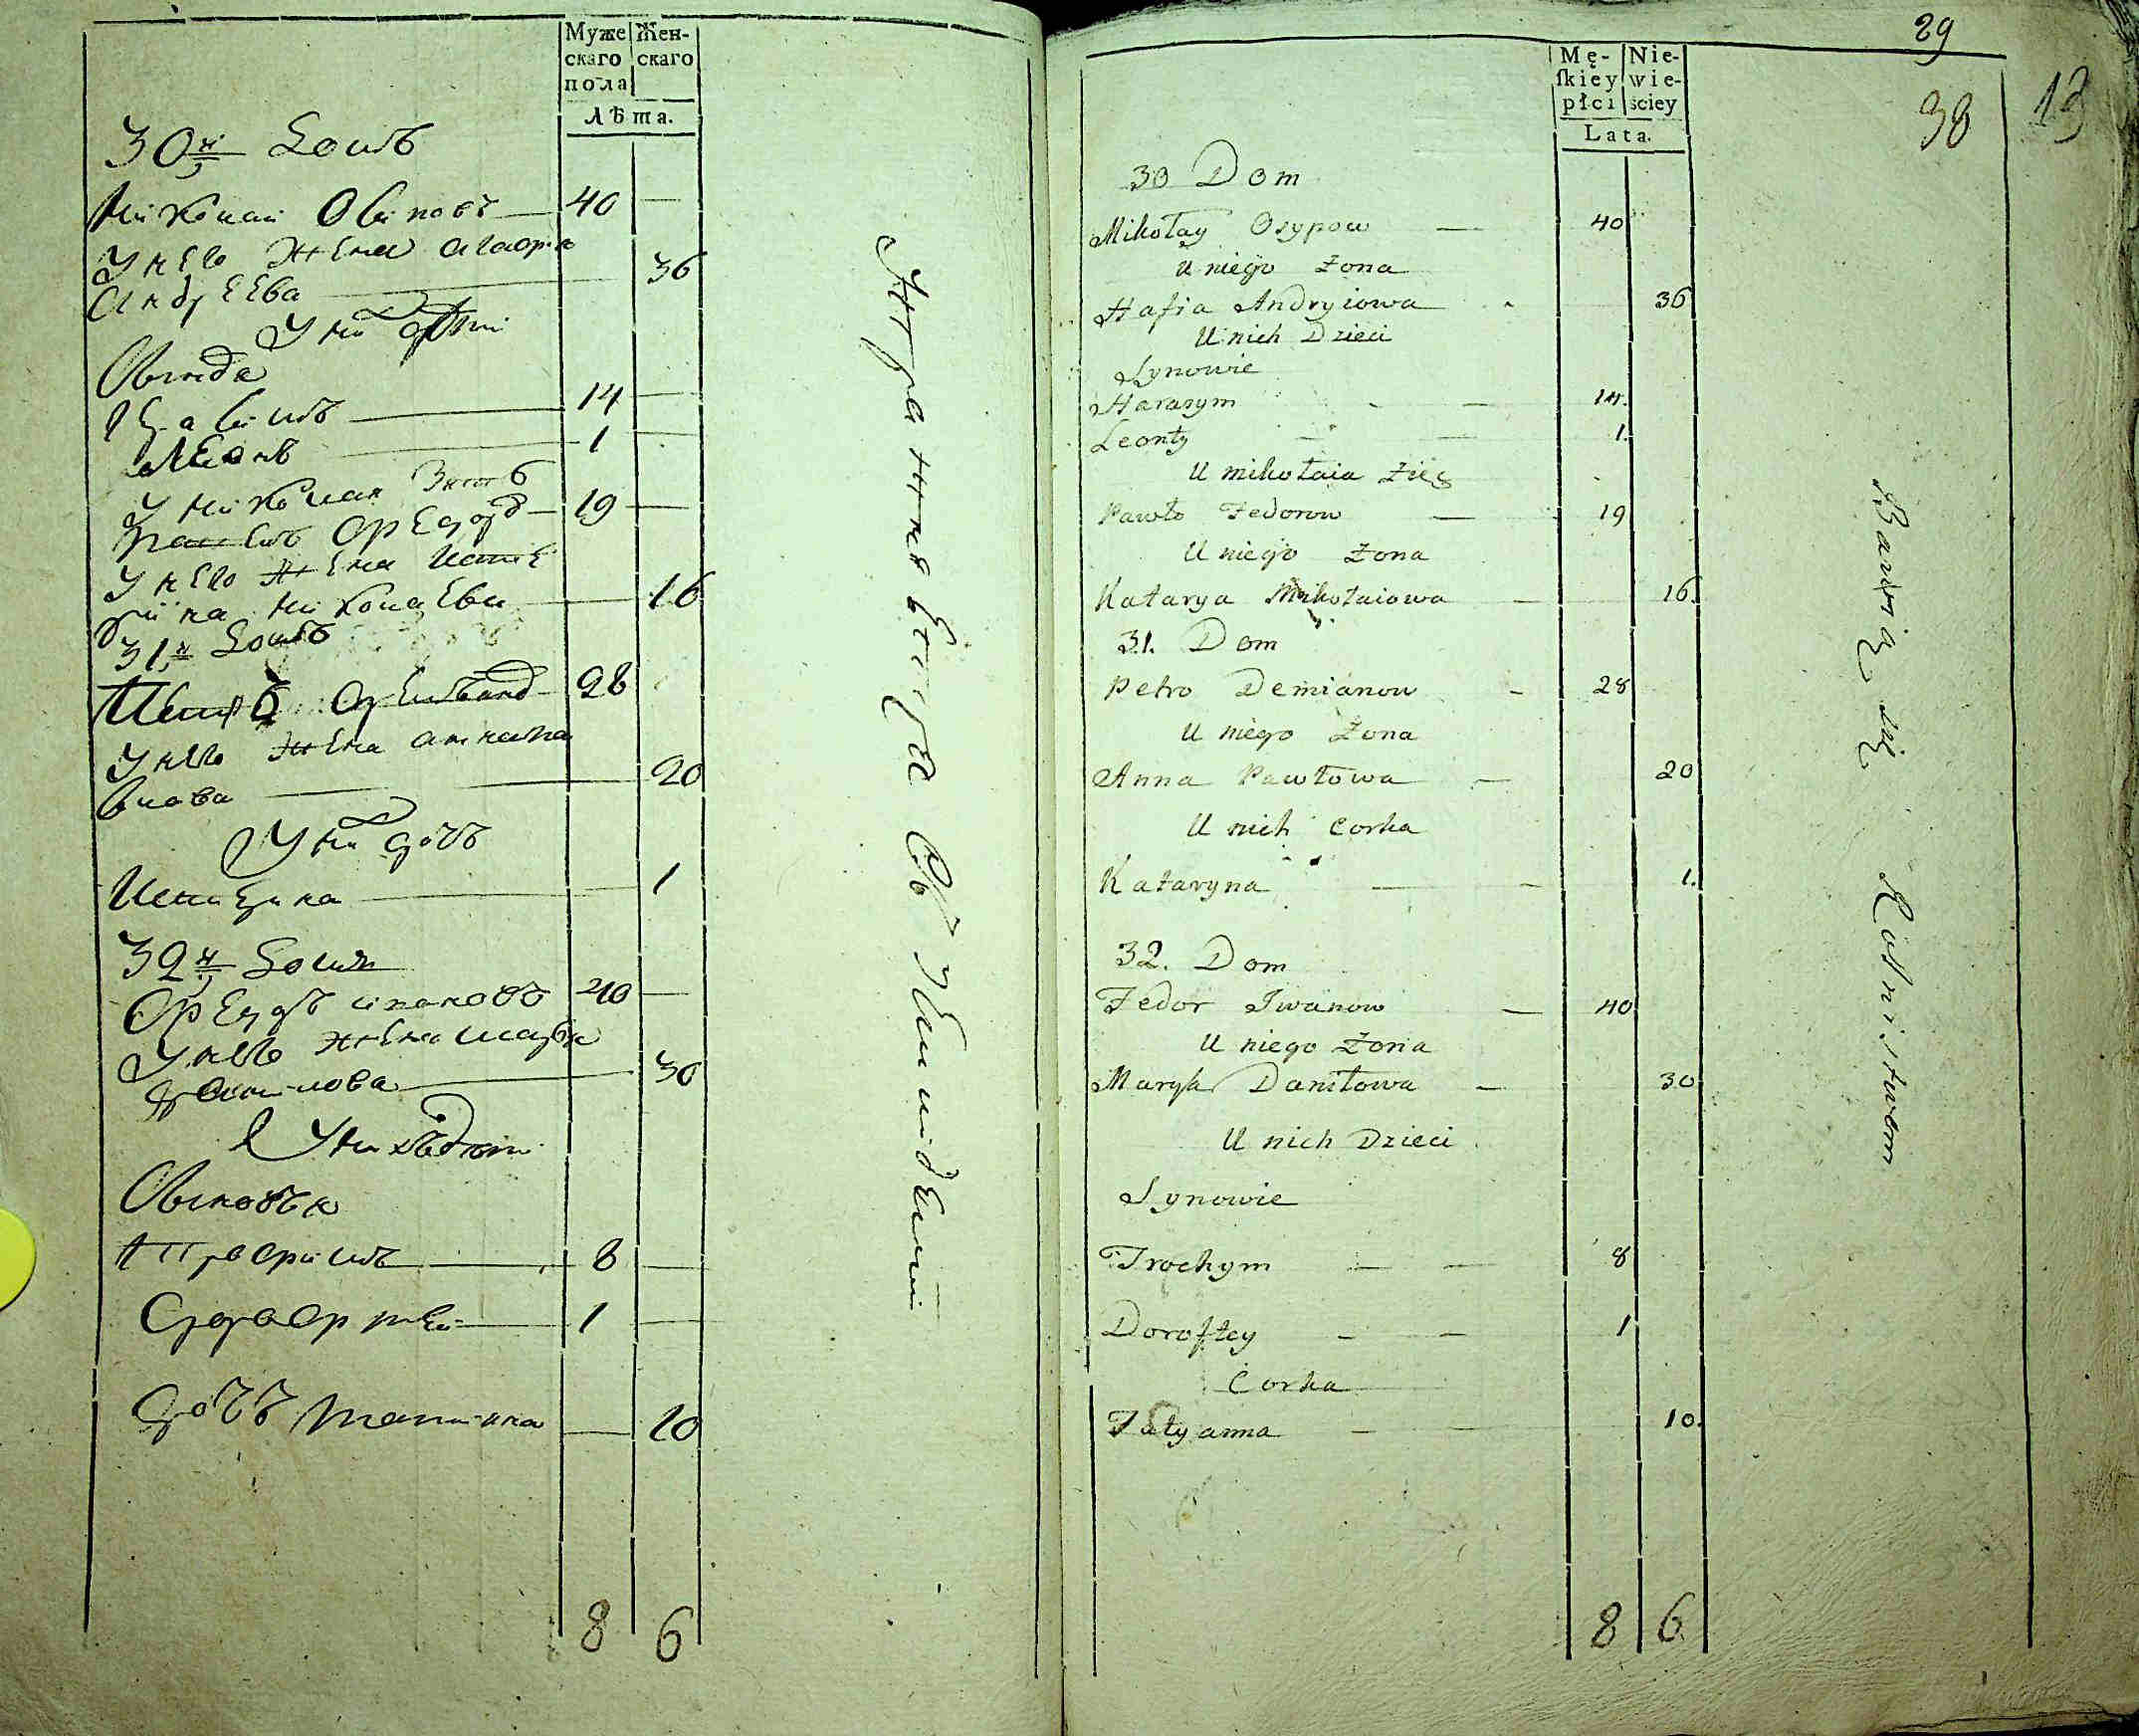 Муже
скаго
пола
Жен-
скаго
Лѣта.
30й Домъ
Николай Осиповъ — 40 —
У нево жена Агафія
Андреева — 36
У них дѣти
Сыновя
Герасимъ — 14 —
Леонъ — 1 —
У Николая зять
Павелъ Федоров — 19 —
У нево жена Кате
рина Николаева — 16
31й Домъ
Петръ Демьянов — 28
У нево жена Анна Па
влова — 20
У них дочь
Катерина — 1
32й Домъ
Федоръ Ивановъ 40 —
У нево жена Марья
Данилова — 30
У них дѣти
Сыновья
Трофимъ — 8 —
Дорофей — 1 —
Дочь Татиана — 10
8 6
29
38
13
Mę-
skiey
płci
Nie-
wie-
ściey
Lata.
30 Dom
Mikołay Osypow — 40
U niego Żona
Hafia Andryiowa 36
U nich Dzieci
Synowie
Harasym — 14.
Leonty — 1.
U mikołaia Zięć
Pawło Fedorow — 19
U niego Żona
Katarya Mikołaiowa — 16.
31. Dom
Petro Demianow — 28
U niego Żona
Anna Pawłowa — 20
U nich Corka
Kataryna — 1.
32. Dom
Fedor Iwanow — 40
U niego Żona
Marya Daniłowa — 30
U nich Dzieci
Synowie
Trochym — 8
Doroftey — 1
Corka
Tatyanna — 10.
8 6
Bawią się Rolnistwem